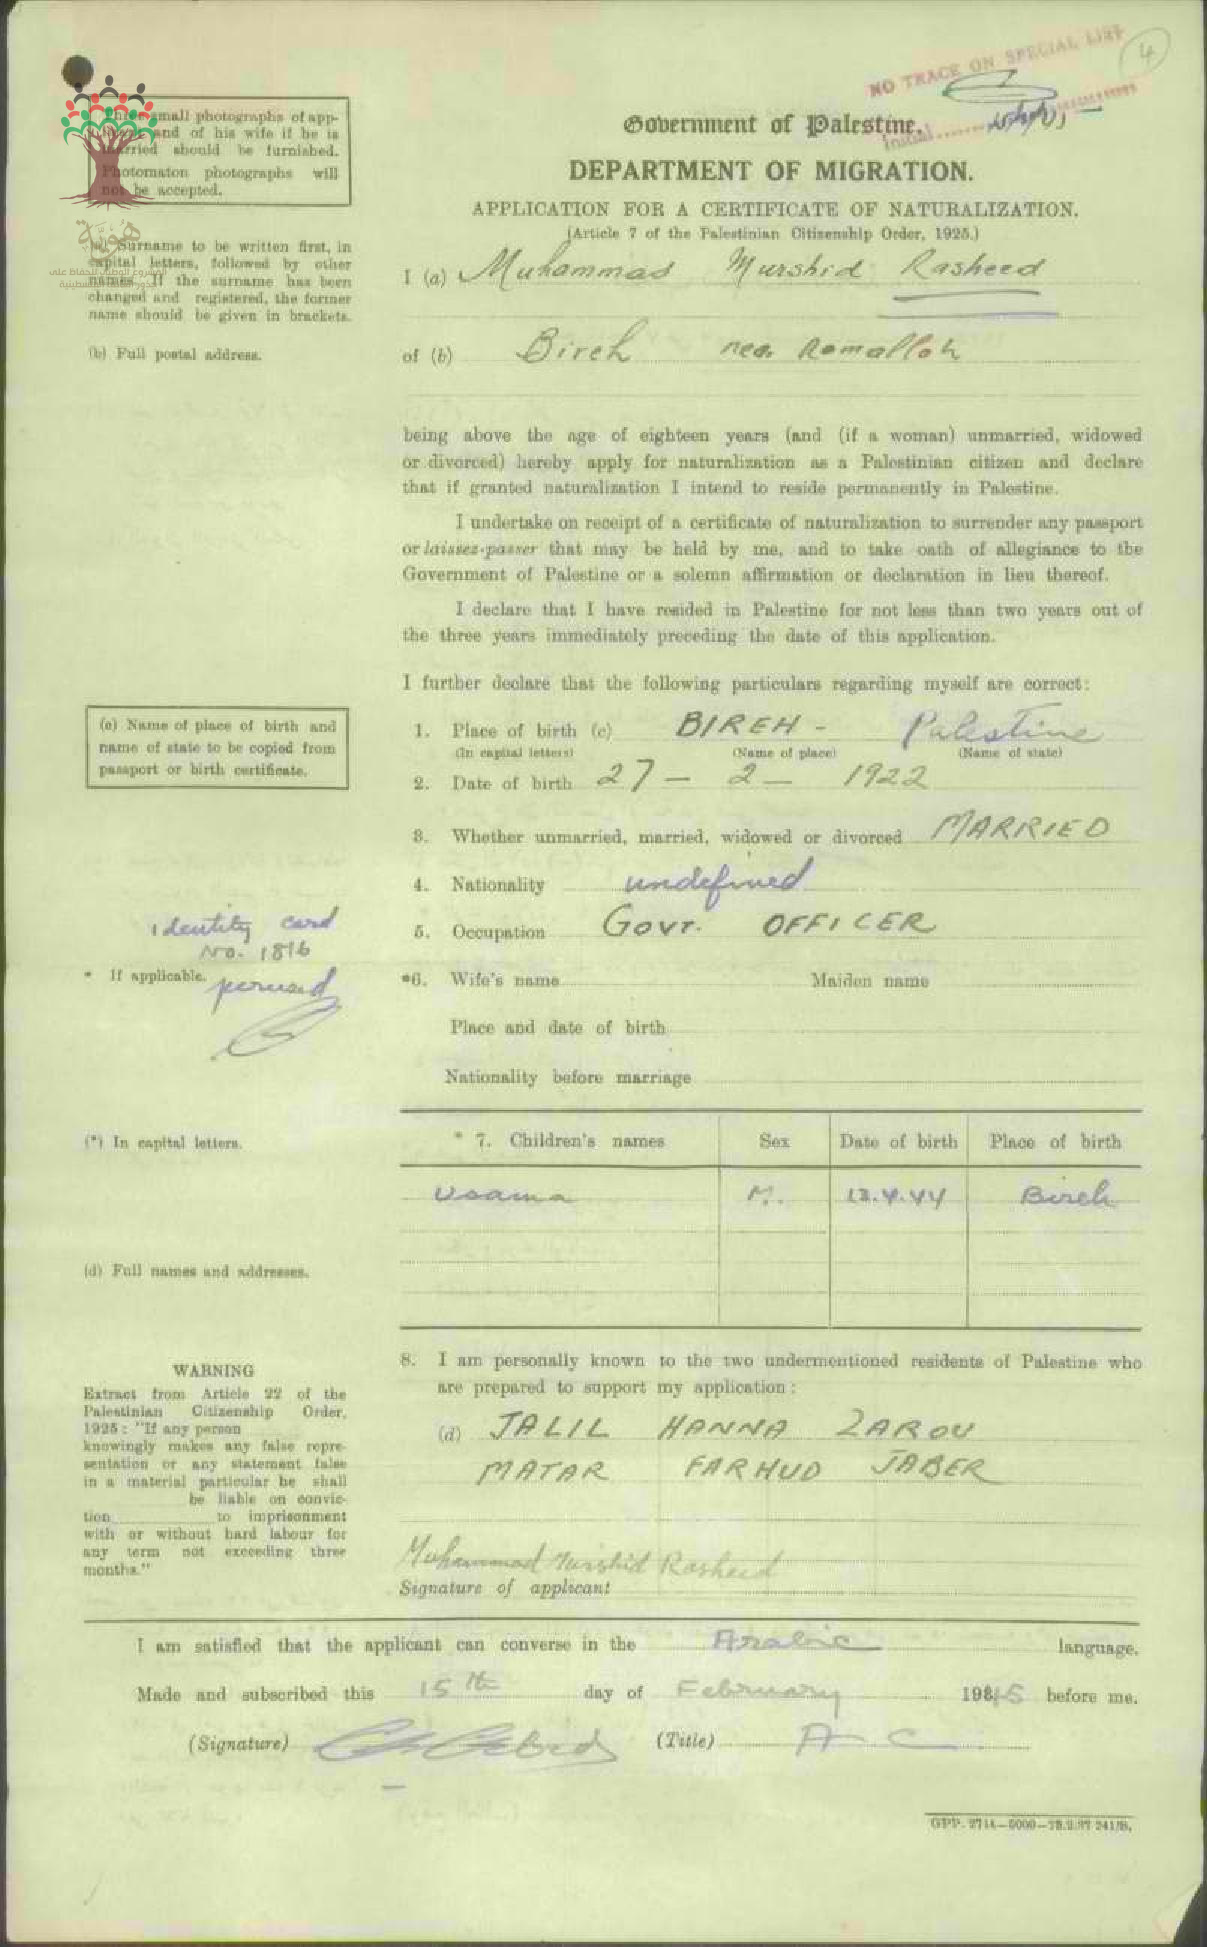 NO TRACE ON SPECIAL LIST
4
Initial
Government of Palestine.
DEPARTMENT OF MIGRATION.
APPLICATION FOR A CERTIFICATE OF NATURALIZATION.
(Article 7 of the Palestinian Citizenship Order, 1925.)
Three small photographs of app-
and of his wife if he is
married should be furnished.
Photomaton photographs will
not be accepted.
هوية
المشروع الوطني للحفاظ على
(a) Surname to be written first, in
capital letters, followed by other
names. If the surname has been
changed and registered, the former
name should be given in brackets.
I (a) Muhammad Murshid Rasheed
(b) Full postal address.
of (b) Bireh near Ramallah
being above the age of eighteen years (and (if a woman) unmarried, widowed
or divorced) hereby apply for naturalization as a Palestinian citizen and declare
that if granted naturalization I intend to reside permanently in Palestine.
I undertake on receipt of a certificate of naturalization to surrender any passport
or laissez-passer that may be held by me, and to take oath of allegiance to the
Government of Palestine or a solemn affirmation or declaration in lieu thereof.
I declare that I have resided in Palestine for not less than two years out of
the three years immediately preceding the date of this application.
I further declare that the following particulars regarding myself are correct:
(c) Name of place of birth and
name of state to be copied from
passport or birth certificate.
1. Place of birth (c) BIREH - Palestine
(In capital letters) (Name of place) (Name of state)
2. Date of birth 27 - 2 - 1922
3. Whether unmarried, married, widowed or divorced MARRIED
4. Nationality undefined
5. Occupation GOVT. OFFICER
identity card
No. 1816
* If applicable. perused
*6. Wife's name Maiden name
Place and date of birth
Nationality before marriage
(*) In capital letters.
* 7. Children's names Sex Date of birth Place of birth
Usama M. 13.4.44 Bireh
(d) Full names and addresses.
8. I am personally known to the two undermentioned residents of Palestine who
are prepared to support my application:
(d) JALIL HANNA ZAROU
MATAR FARHUD JABER
WARNING
Extract from Article 22 of the
Palestinian Citizenship Order,
1925: "If any person
knowingly makes any false repre-
sentation or any statement false
in a material particular he shall
be liable on convic-
tion to imprisonment
with or without hard labour for
any term not exceeding three
months."
Muhammad Murshid Rasheed
Signature of applicant
I am satisfied that the applicant can converse in the Arabic language.
Made and subscribed this 15th day of February 1945 before me.
(Signature) (Title) A C.
GPP. 2714-5000-